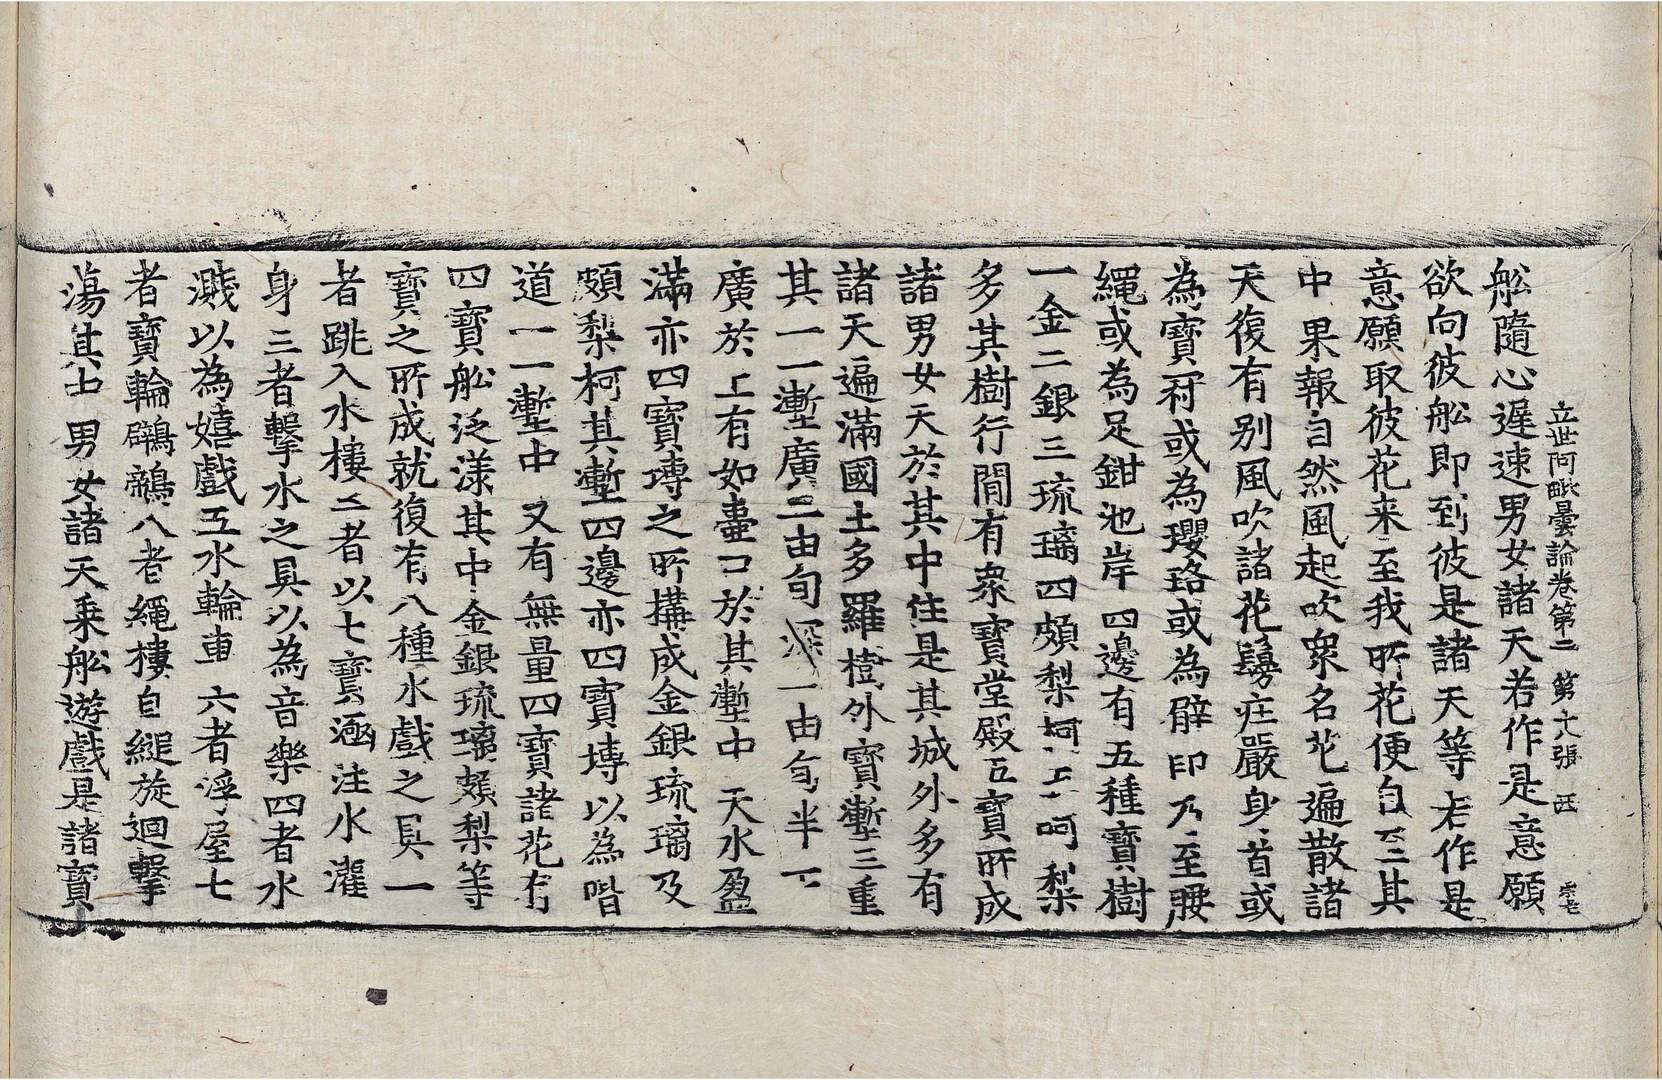 立世阿毗曇論卷第二 第十八張 西
舩隨心遲速男女諸天若作是意願
欲向彼舩即到彼是諸天等若作是
意願取彼花来至我所花便自至其
中果報自然風起吹衆名花遍散諸
天復有别風吹諸花鬘庄嚴身首或
為寶冠或為瓔珞或為臂印乃至腰
繩或為足鉗池岸四邊有五種寶樹
一金二銀三琉璃四頗梨柯五呵梨
多其樹行閒有衆寶堂殿五寶所成
諸男女天於其中住是其城外多有
諸天遍滿國土多羅樹外寶壍三重
其一一壍廣二由旬深一由旬半下
廣於上有如壷口於其壍中天水盈
滿亦四寶塼之所搆成金銀琉璃及
頗梨柯其壍四邊亦四寶塼以為階
道一一壍中又有無量四寶諸花有
四寶舩泛漾其中金銀琉璃頗梨等
寶之所成就復有八種水戲之具一
者跳入水樓二者以七寶凾注水灌
身三者擊水之具以為音樂四者水
濺以為嬉戲五水輪車六者浮屋七
者寶輪鸊鷉八者繩樓自縋旋迴擊
蕩其中男女諸天乗舩遊戲是諸寶